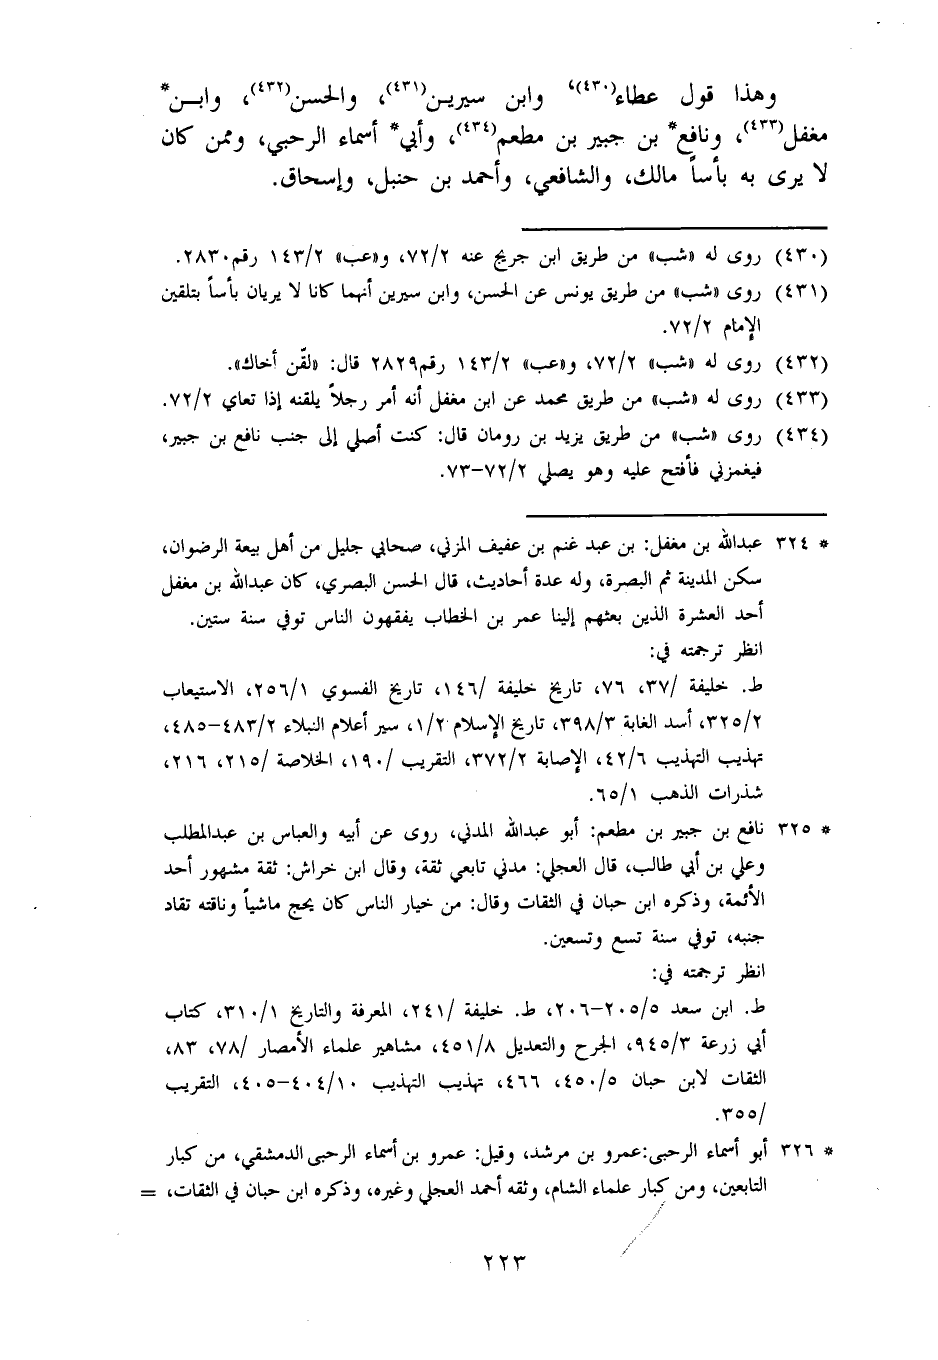 وهذا قول عطاء(٤٣٠)، وابن سيرين(٤٣١)، والحسن(٤٣٢)، وابـن*
مغفل(٤٣٣)، ونافع* بن جبير بن مطعم(٤٣٤)، وأبي* أسماء الرحبي، وممن كان
لا يرى به بأساً مالك، والشافعي، وأحمد بن حنبل، وإسحاق.
(٤٣٠) روى له «شب» من طريق ابن جريج عنه ٧٢/٢، و«عب» ١٤٣/٢ رقم ٢٨٣٠.
(٤٣١) روى «شب» من طريق يونس عن الحسن، وابن سيرين أنهما كانا لا يريان بأساً بتلقين
الإمام ٧٢/٢.
(٤٣٢) روى له «شب» ٧٢/٢، و«عب» ١٤٣/٢ رقم ٢٨٢٩ قال: «لقّن أخاك».
(٤٣٣) روى له «شب» من طريق محمد عن ابن مغفل أنه أمر رجلاً يلقنه إذا تعاي ٧٢/٢.
(٤٣٤) روى «شب» من طريق يزيد بن رومان قال: كنت أصلي إلى جنب نافع بن جبير،
فيغمزني فأفتح عليه وهو يصلي ٧٢/٢–٧٣.
* ٣٢٤ عبدالله بن مغفل: بن عبد غنم بن عفيف المزني، صحابي جليل من أهل بيعة الرضوان،
سكن المدينة ثم البصرة، وله عدة أحاديث، قال الحسن البصري، كان عبدالله بن مغفل
أحد العشرة الذين بعثهم إلينا عمر بن الخطاب يفقهون الناس توفي سنة ستين.
انظر ترجمته في:
ط. خليفة /٣٧، ٧٦، تاريخ خليفة /١٤٦، تاريخ الفسوي ٢٥٦/١، الاستيعاب
٣٢٥/٢، أسد الغابة ٣٩٨/٣، تاريخ الإسلام ١/٢، سير أعلام النبلاء ٤٨٣/٢–٤٨٥،
تهذيب التهذيب ٤٢/٦، الإصابة ٣٧٢/٢، التقريب /١٩٠، الخلاصة /٢١٥، ٢١٦،
شذرات الذهب ٦٥/١.
* ٣٢٥ نافع بن جبير بن مطعم: أبو عبدالله المدني، روى عن أبيه والعباس بن عبدالمطلب
وعلي بن أبي طالب، قال العجلي: مدني تابعي ثقة، وقال ابن خراش: ثقة مشهور أحد
الأئمة، وذكره ابن حبان في الثقات وقال: من خيار الناس كان يحج ماشياً وناقته تقاد
جنبه، توفي سنة تسع وتسعين.
انظر ترجمته في:
ط. ابن سعد ٢٠٥/٥–٢٠٦، ط. خليفة /٢٤١، المعرفة والتاريخ ٣١٠/١، كتاب
أبي زرعة ٩٤٥/٣، الجرح والتعديل ٤٥١/٨، مشاهير علماء الأمصار /٧٨، ٨٣،
الثقات لابن حبان ٤٥٠/٥، ٤٦٦، تهذيب التهذيب ٤٠٤/١٠–٤٠٥، التقريب
/٣٥٥.
* ٣٢٦ أبو أسماء الرحبى:عمرو بن مرشد، وقيل: عمرو بن أسماء الرحبى الدمشقي، من كبار
التابعين، ومن كبار علماء الشام، وثقه أحمد العجلي وغيره، وذكره ابن حبان في الثقات، =
٢٢٣